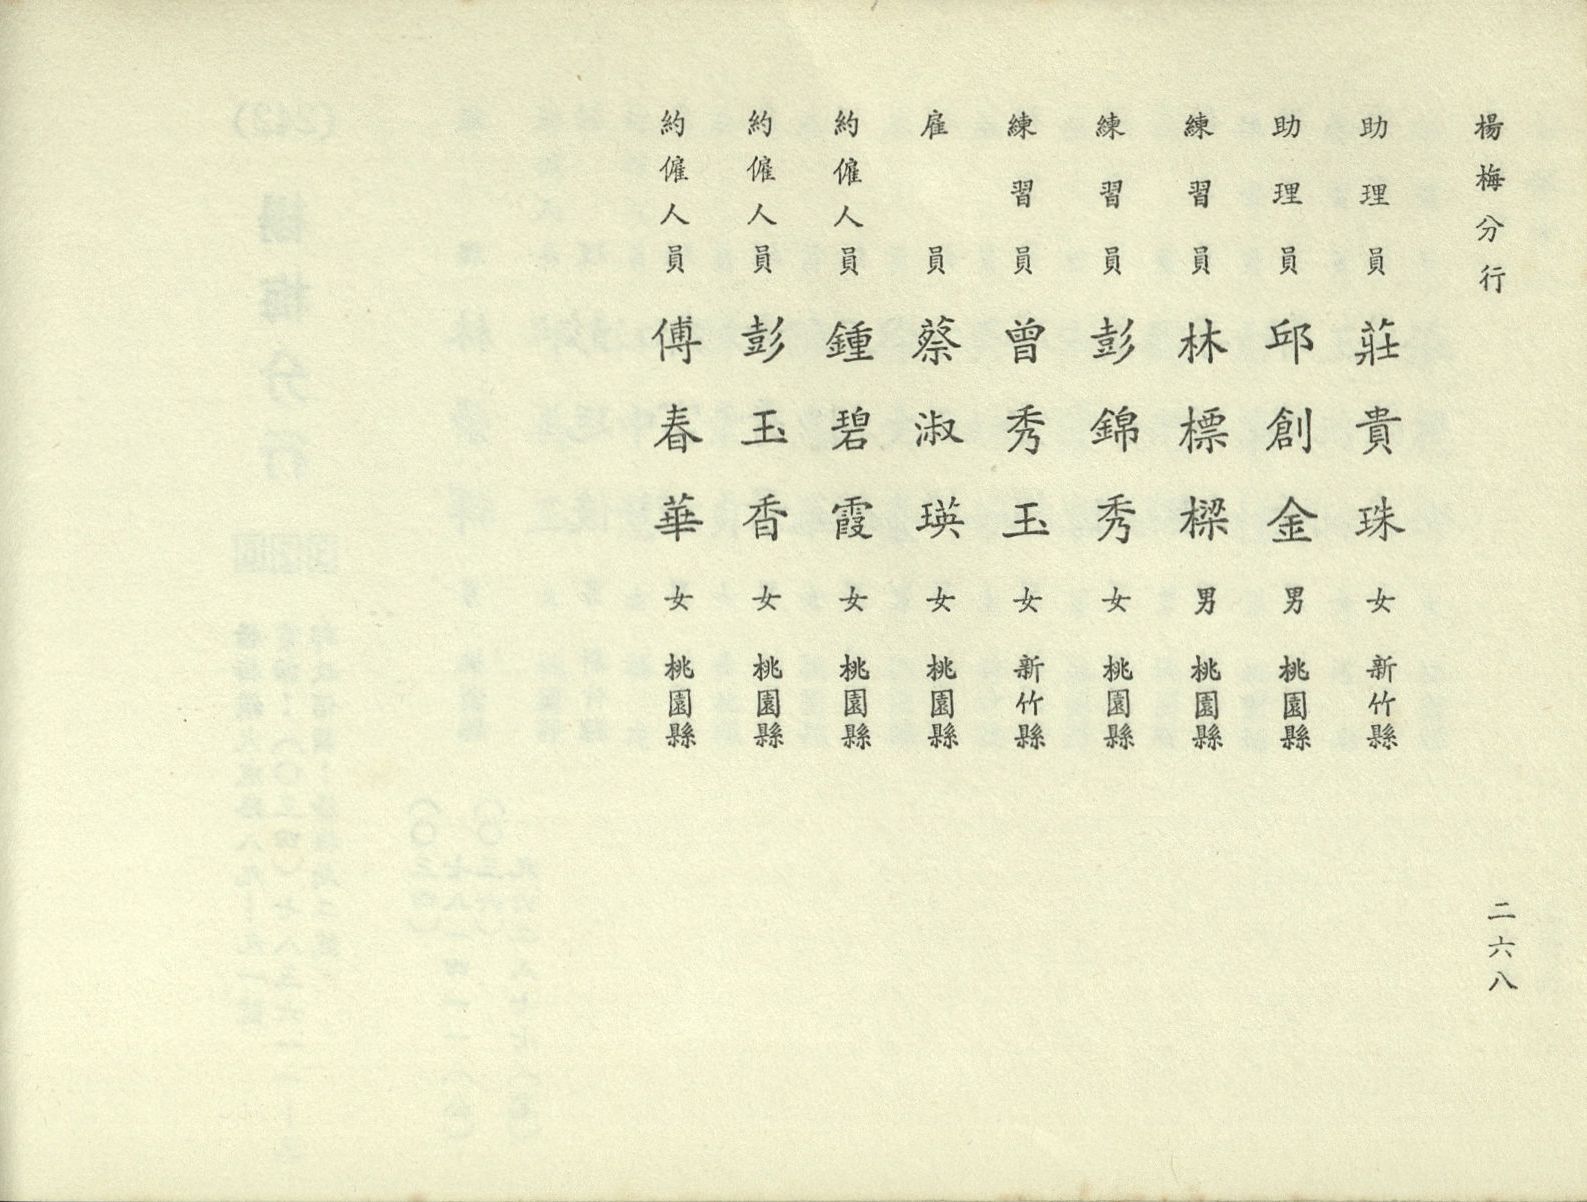 楊梅分行
二六八
助理員 莊貴珠 女 新竹縣
助理員 邱創金 男 桃園縣
練習員 林標樑 男 桃園縣
練習員 彭錦秀 女 桃園縣
練習員 曾秀玉 女 新竹縣
雇員 蔡淑瑛 女 桃園縣
約僱人員 鍾碧霞 女 桃園縣
約僱人員 彭玉香 女 桃園縣
約僱人員 傅春華 女 桃園縣